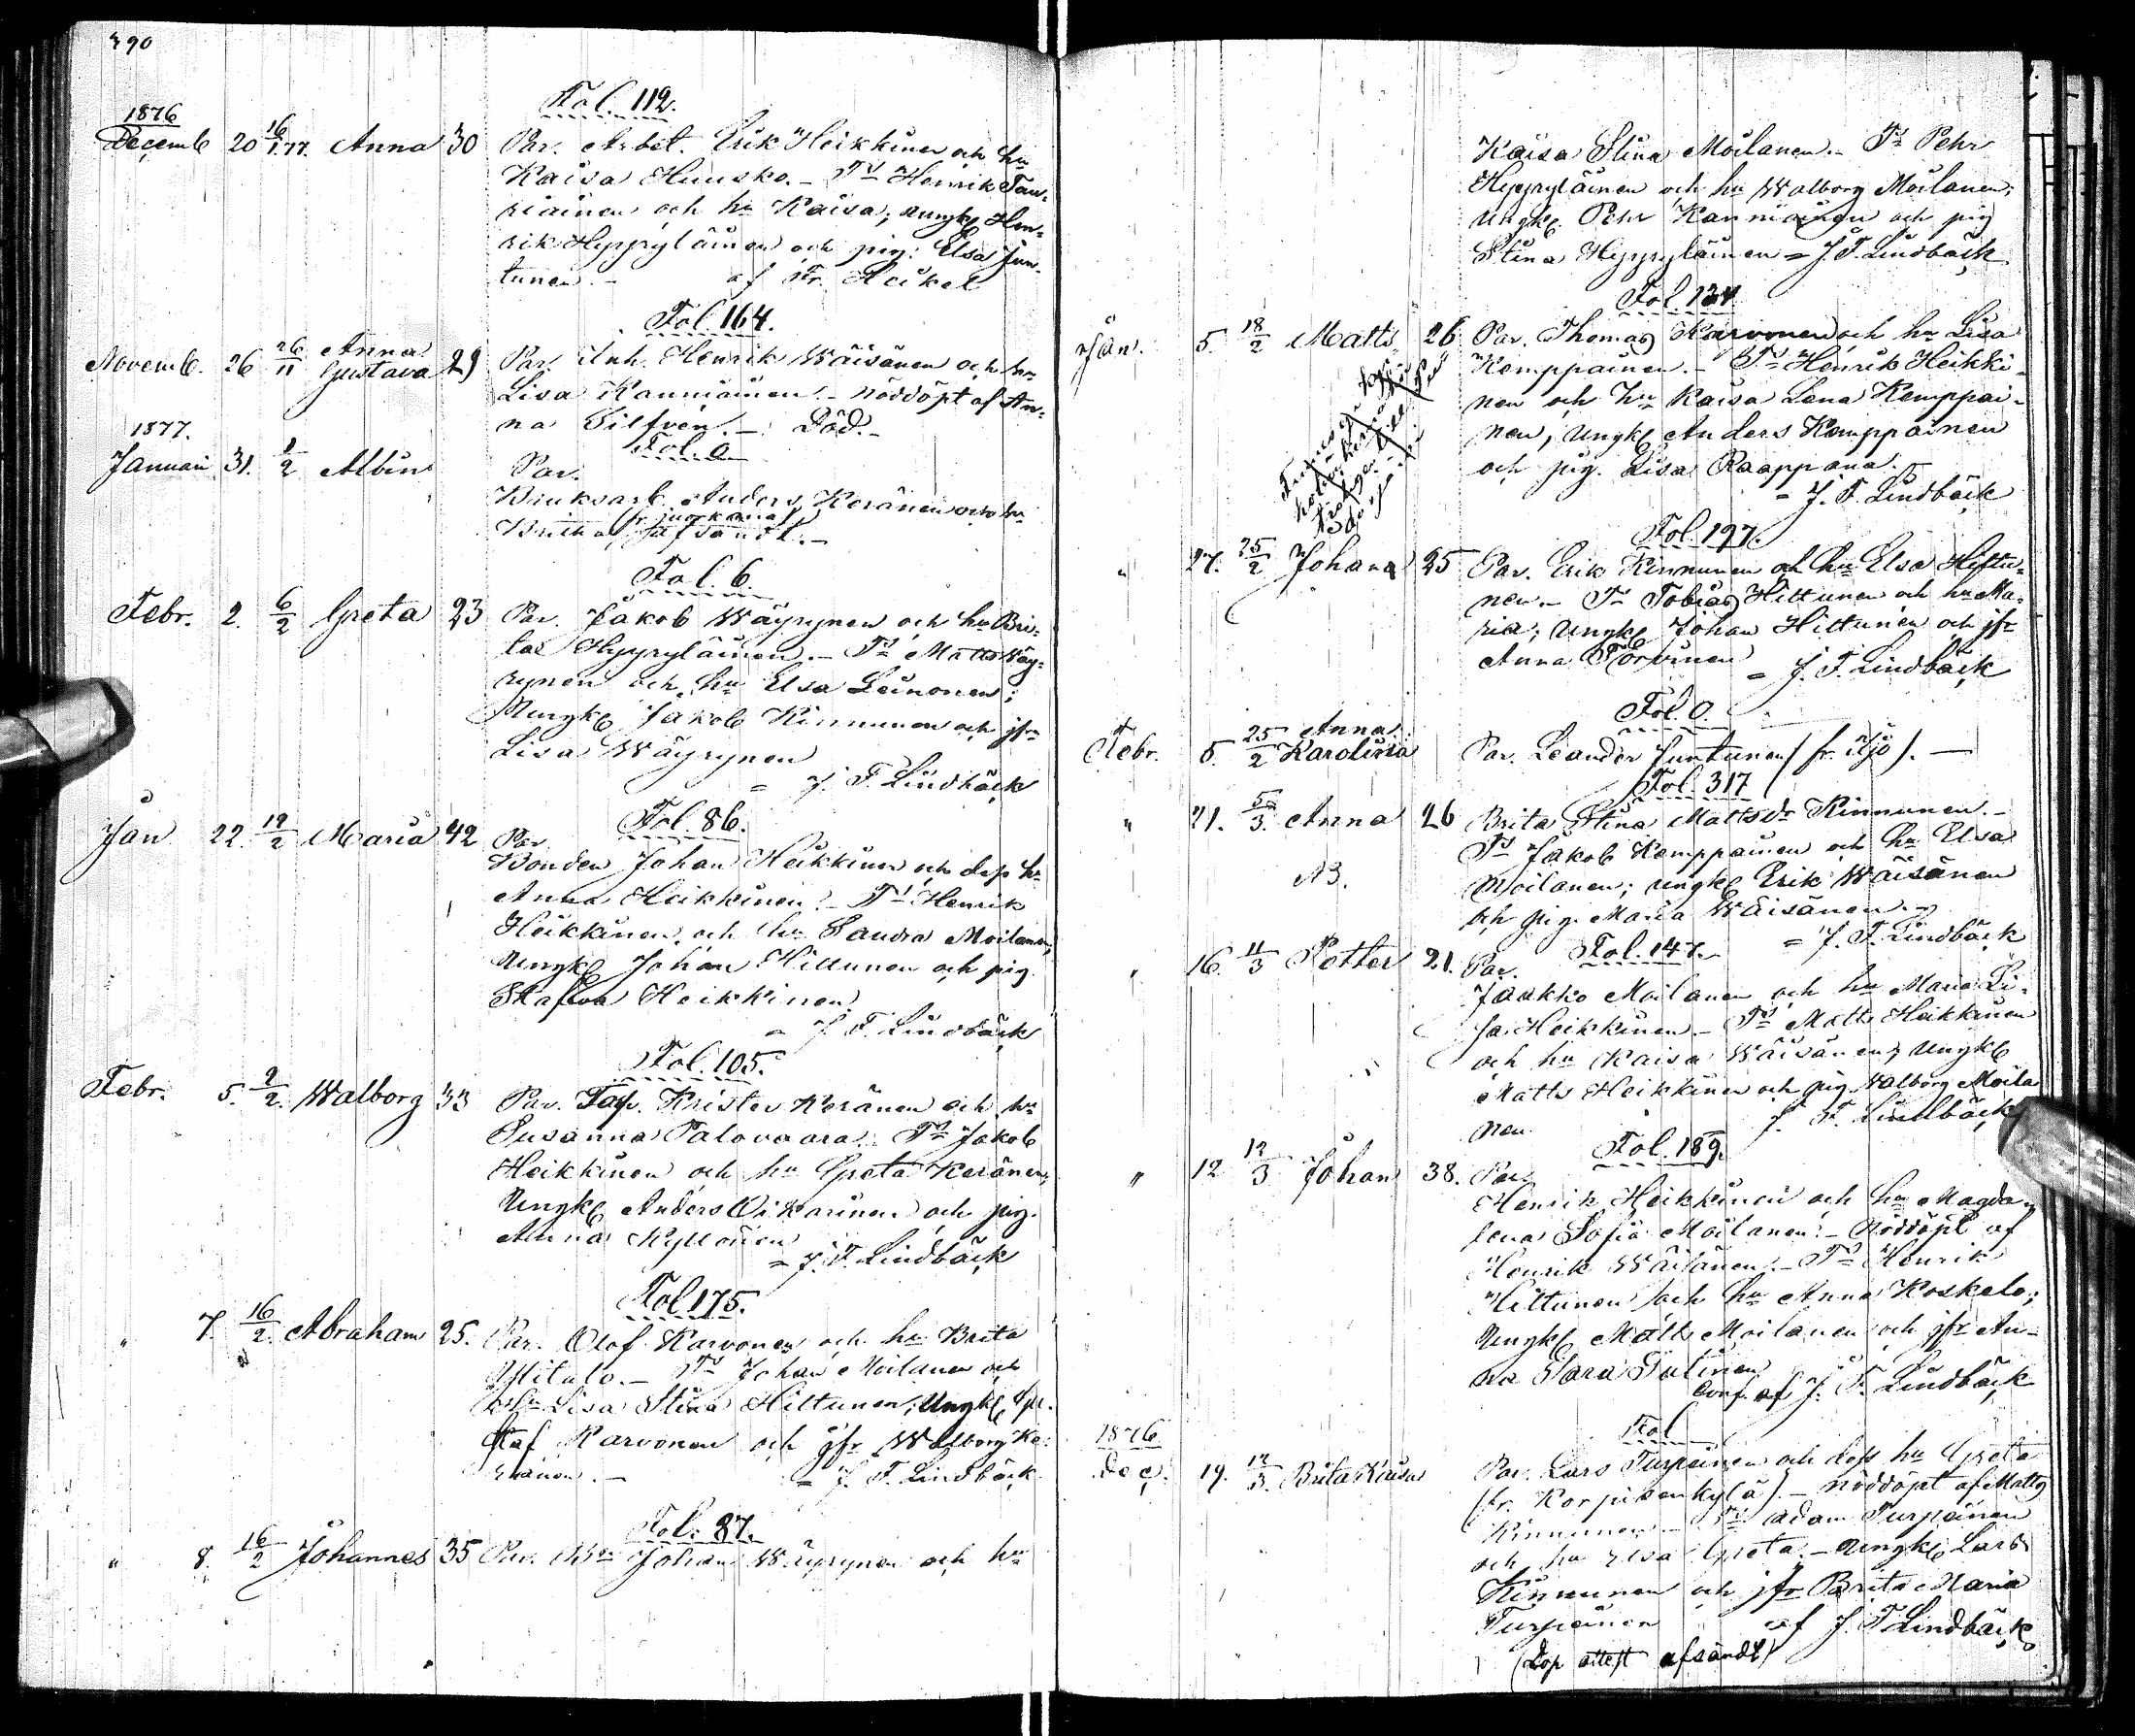 390
Fol. 112.
1876
Decemb 20 16/1.77. Anna 30 Par. Arbet. Erik Heikkinen och hu
Kaisa Huusko. - Ts Henrik Tau-
riainen och hu Kaisa; ungk Hen-
rik Hyyryläinen och pig: Elsa Jun-
tunen. - af Fr. Heikel
Fol. 164.
Novemb. 26 26/11 Anna Gustava 29 Par. Inh. Henrik Wäisänen och hu
Lisa Kanniainen. - nöddöpt af An-
na Silfvén. - Död. -
1877. Fol. 0
Januari 31. 1/2 Albin Par.
Bruksarb. Anders Keränen och hu
Brita (fr. juorkuna) afsändt. -
Fol. 6.
Febr. 2. 6/2 Greta 23 Par. Jakob Wäyrynen och hu Bri-
ta Hyyryläinen. - Ts Matts Wäy-
rynen och hu Elsa Leinonen;
Ungk Jakob Kinnunen och jfr
Lisa Wäyrynen
= J. F. Lindbäck
Fol. 86.
Jan 22. 12/2 Maria 42 Par.
Bonden Johan Heikkinen och dess hu
Anna Heikkinen. - Ts Henrik
Heikkinen och hu Sandra Moilanen;
Ungk Johan Hiltunen och pig.
Stafva Heikkinen
= J. F. Lindbäck
Fol. 105.
Febr. 5. 2/2. Walborg 33 Par. Torp. Krister Keränen och hu
Susanna Palovaara. Ts Jakob
Heikkinen och hu Greta Keränen;
Ungk Anders Oikarinen och pig.
Anna Kyllönen
= J. F. Lindbäck
Fol 175.
" 7. 16/2. Abraham 25. Par. Olof Karvonen och hu Brita
Ylitalo. - Ts Johan Moilanen och
hu Lisa Stina Hiltunen; Ungk Gu-
staf Karvonen och jfr Walborg Ke-
ränen. - = J. F. Lindbäck
Fol: 87.
" 8. 16/2 Johannes 35 Par. Bn Johan Wäyrynen och hu
Kaisa Stina Moilanen. - Ts Pehr
Hyyryläinen och hu Walborg Moilanen;
ungk. Pehr Kanniainen och pig
Stina Hyyryläinen = J. F. Lindbäck
Fol. 134.
Jan. 5. 18/2 Matts 26 Par. Thomas Karvonen och hu Lisa
Kemppainen. - Ts Henrik Heikki-
nen och hu Kaisa Lena Kemppai-
nen; Ungk Anders Kemppainen
och pig. Lisa Raappana.
= J. F. Lindbäck
Fol. 197.
" 27. 25/2 Johan 25 Par. Erik Kinnunen och hu Elsa Hiltu-
nen. - Ts Tobias Hiltunen och hu Ma-
ria; Ungk Johan Hiltunen och jfr
Anna Törvinen
= J. F. Lindbäck
Fol. 0.
Febr. 5. 25/2 Anna Karolina Par. Leander Juntunen (fr. Ijo). -
Fol. 317
" 21. 5/3. Anna 26 Brita Stina Mattsdr Kinnunen. -
Ts Jakob Kemppainen och hu Elsa
NB. Moilanen; ungk Erik Wäisänen
och pig. Maria Wäisänen. -
= J. F. Lindbäck
Fol. 147.
" 16. 11/3 Petter 21. Par.
Jaakko Moilanen och hu Maria Li-
sa Heikkinen. - Ts Matts Heikkinen
och hu Kaisa Wäisänen; Ungk
Matts Heikkinen och pig. Walborg Moila
nen. J. F. Lindbäck
Fol. 189.
" 12 12/3 Johan 38. Par.
Henrik Heikkinen och hu Magda-
lena Sofia Moilanen. - Nöddöpt af
Henrik Wäisänen. - Ts Henrik
Hiltunen och hu Anna Koskelo;
Ungk Matts Moilanen och jfr An-
na Sara Tulinen
Conf. af J. F. Lindbäck
1876 Fol
Dec. 19. 12/3. Brita Kaisa Par. Lars Turpeinen och dess hu Greta
(fr. Korpisenkylä). - nöddöpt af Matts
Kinnunen - Ts Adam Turpeinen
och hu Elsa Greta. - Ungk Lars
Kinnunen och jfr Brita Maria
Turpeinen af J. F. Lindbäck
(Dop attest afsändt)